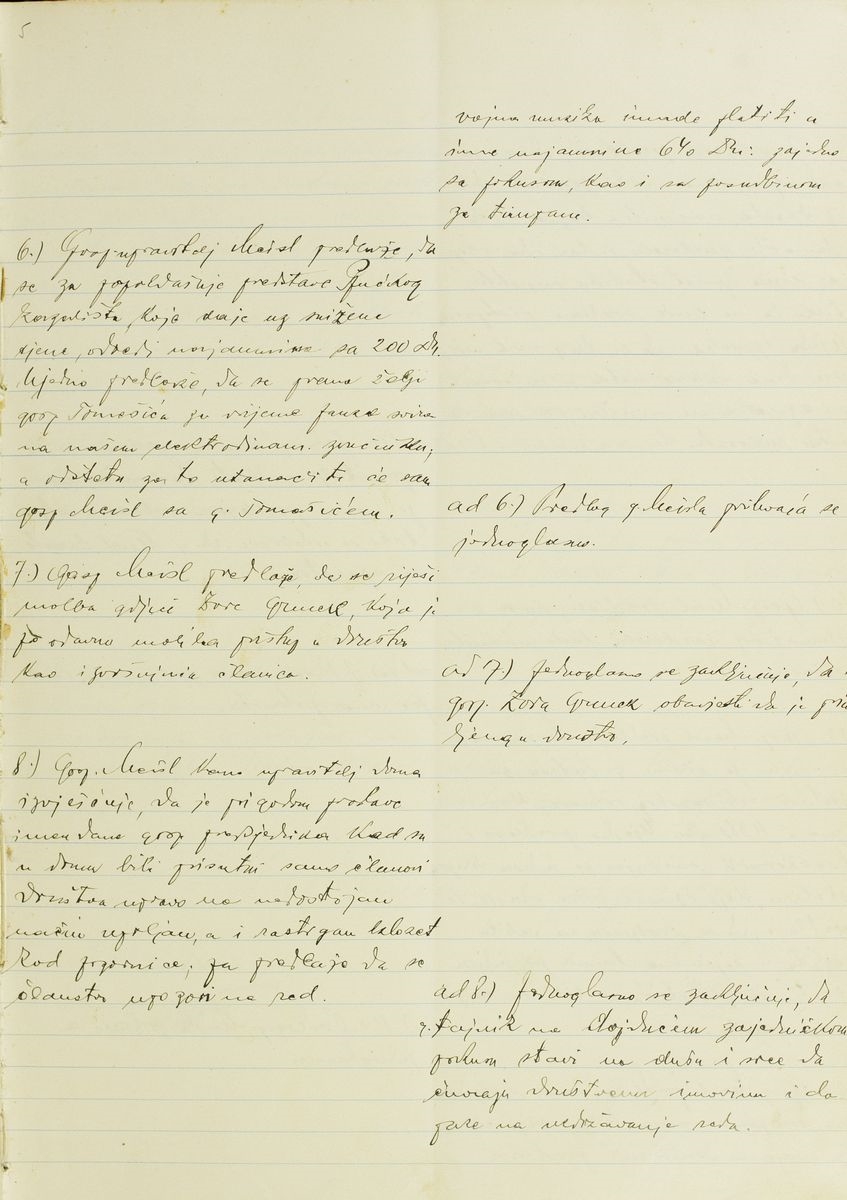 5
vojna muzika imade platiti u
ime najamnine 640 Din. zajedno
sa pokusom, kao i sa posudbinom
za timpane.
6.) Gosp. upravitelj Meisl predlaže, da
se za popoldašnje predstave Pučkog
kazališta, koje daje uz snižene
cijene, odredi najamnina sa 200 Din.
Ujedno predlaže, da se prema želji
gosp Tomašića za vrijeme pauze svira
na našem elektrodinam. zvučniku,
a odštetu za to utanačiti će sam
gosp Meisl sa g. Tomašićem.
ad 6.) Predlog g. Meisla prihvaća se
jednoglasno.
7.) Gosp Meisl predlaže, da se riješi
molba gdjice Zore Grunek, koja je
još odavno molila pristup u društvo
kao izvršujuća članica.
ad 7.) Jednoglasno se zaključuje, da
gosp. Zora Grunek obavjesti da je
ljena u društvo.
8.) Gosp. Meisl kano upravitelj doma
izvješćuje, da je prigodom proslave
imendana gosp predsjednika kad su
u domu bili prisutni samo članovi
društva upravo na nedostojan
način uprljan, a i rastrgan klozet
kod pozornice, pa predlaže da se
članstvo upozori na red.
ad 8.) Jednoglasno se zaključuje, da
g. tajnik na dojdućem zajedničkom
pokusu stavi na dušu i srce da
čuvaju društvenu imovinu i da
paze na uzdržavanje reda.